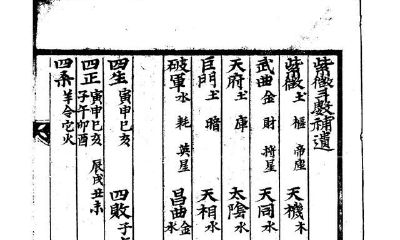 紫微斗數補遺
紫微土 樞 帝座 天機木
武曲金 財 將星 天同水
天府土 庫 太陰水
巨門土 暗 天相水
破軍水 耗 英星 昌曲金水
四生 寅申巳亥 四敗 子
四正 寅申巳亥 子午卯酉 辰戌丑未
四 羊令它火